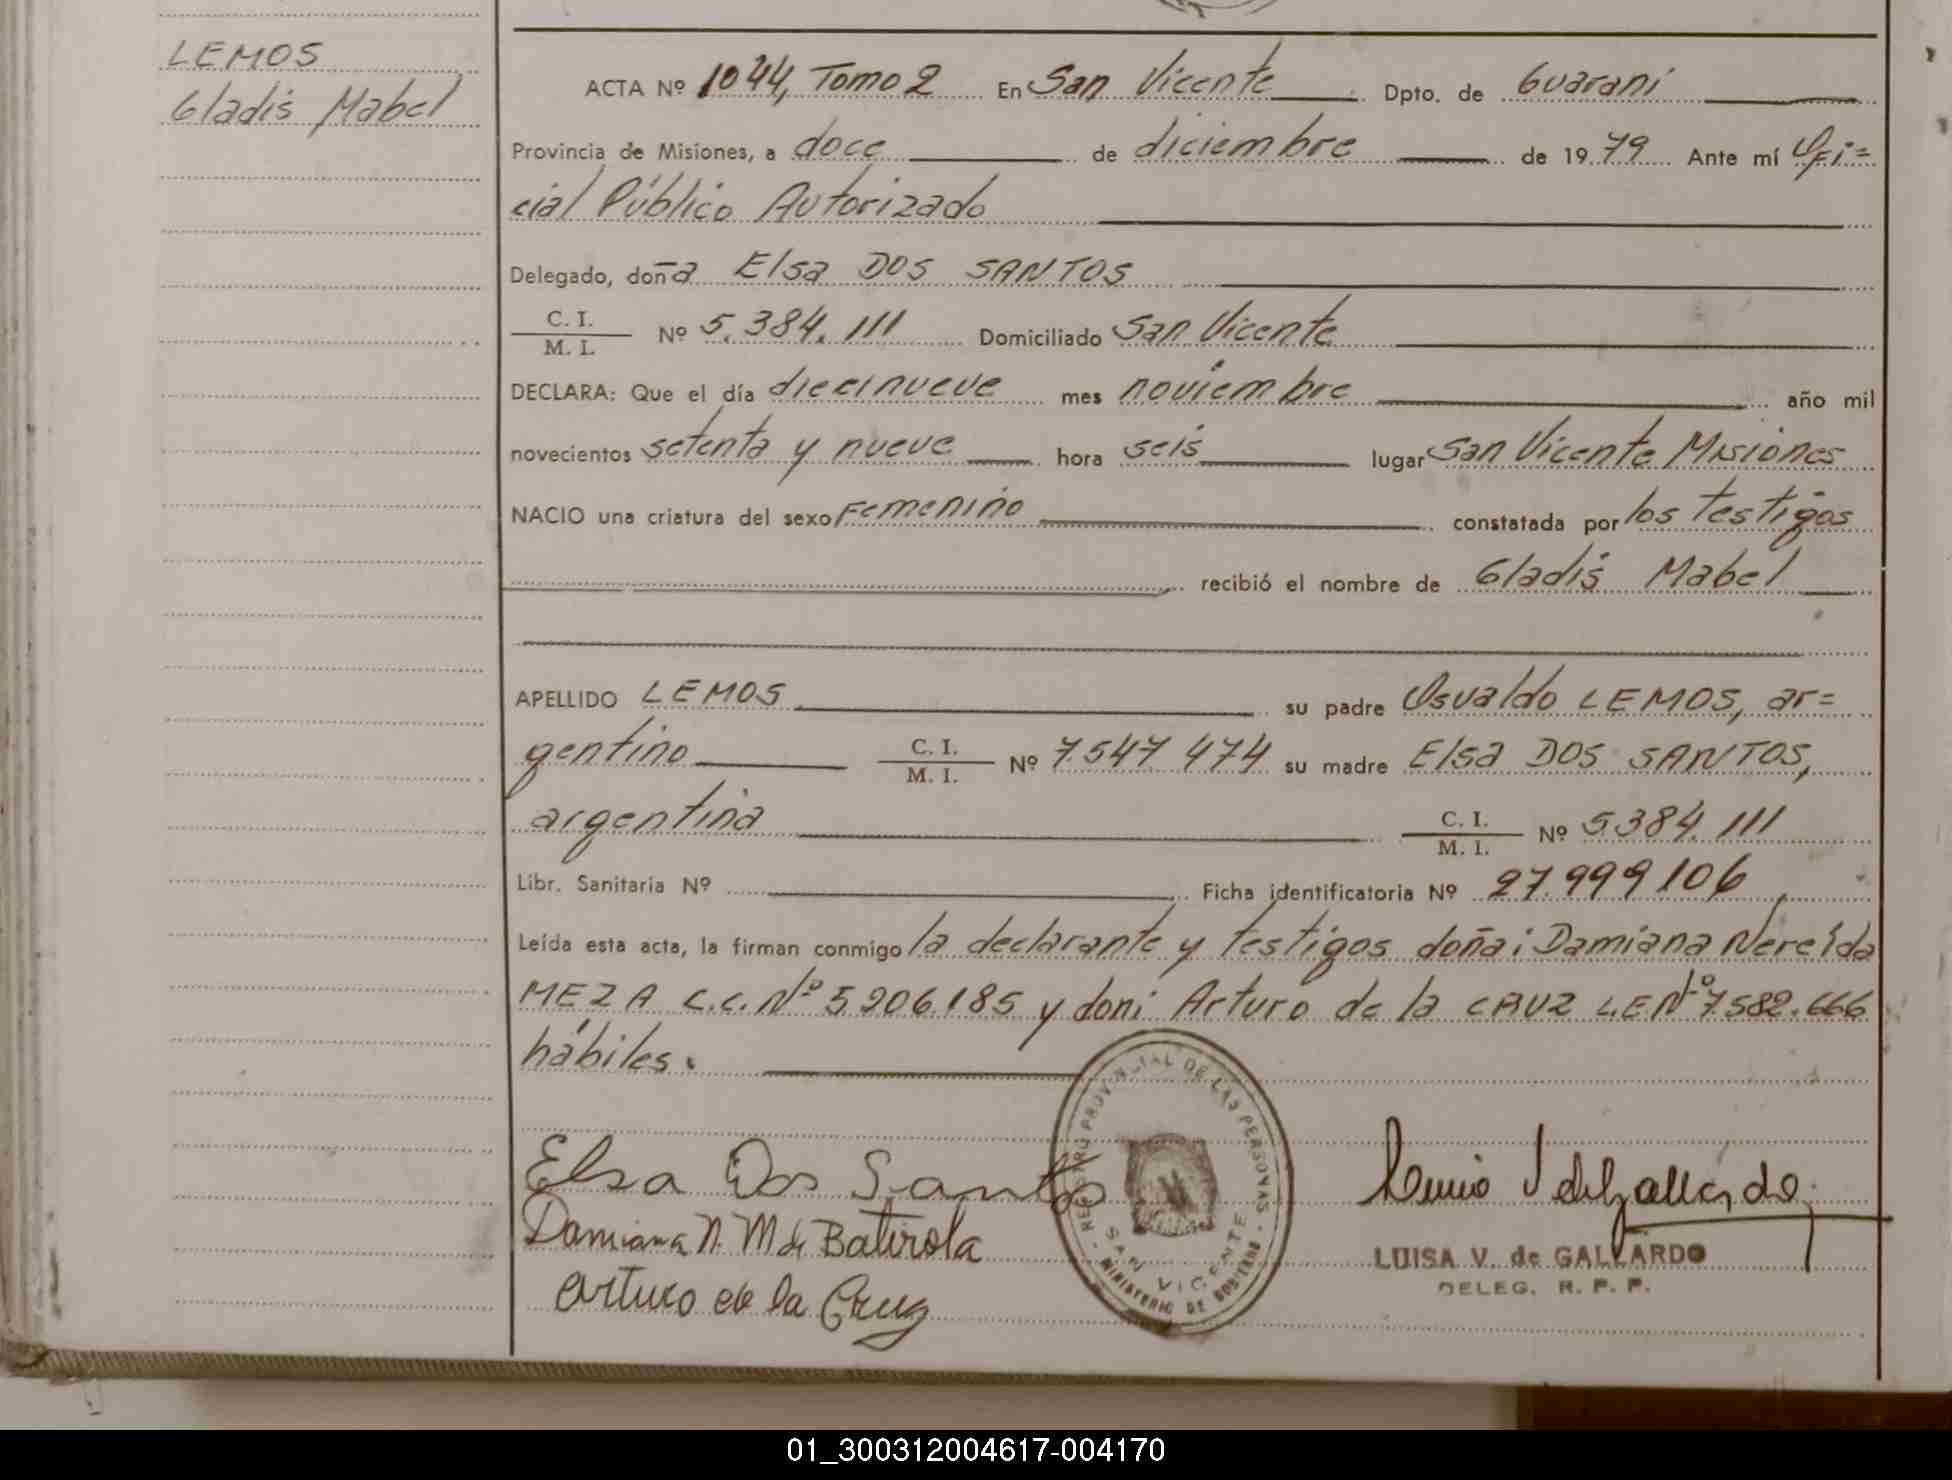 LEMOS
Gladis Mabel
ACTA Nº 1044, Tomo 2 En San Vicente Dpto. de Guarani
Provincia de Misiones, a doce de diciembre de 1979 Ante mí Ofi=
cial Público Autorizado
Delegado, doña Elsa DOS SANTOS
C. I.
M. I. Nº 5.384.111 Domiciliado San Vicente
DECLARA: Que el día diecinueve mes noviembre año mil
novecientos setenta y nueve hora seis lugar San Vicente Misiones
NACIO una criatura del sexo Femenino constatada por los testigos
recibió el nombre de Gladis Mabel
APELLIDO LEMOS su padre Osvaldo LEMOS, ar=
gentino C. I. M. I. Nº 7.547 474 su madre Elsa DOS SANTOS,
argentina C. I. M. I. Nº 5.384.111
Libr. Sanitaria Nº Ficha identificatoria Nº 27.999106
Leída esta acta, la firman conmigo la declarante y testigos doña: Damiana Nereida
MEZA C.C. Nº 5.206.185 y don: Arturo de la CRUZ L.E Nº 7.582.666
hábiles.
Elsa Dos Santos
Damiana N. M de Batirola
Arturo de la Cruz
REGISTRO PROVINCIAL DE LAS PERSONAS
SAN VICENTE
MINISTERIO DE GOBIERNO
LUISA V. de GALLARDO
DELEG. R. P. P.
01_300312004617-004170